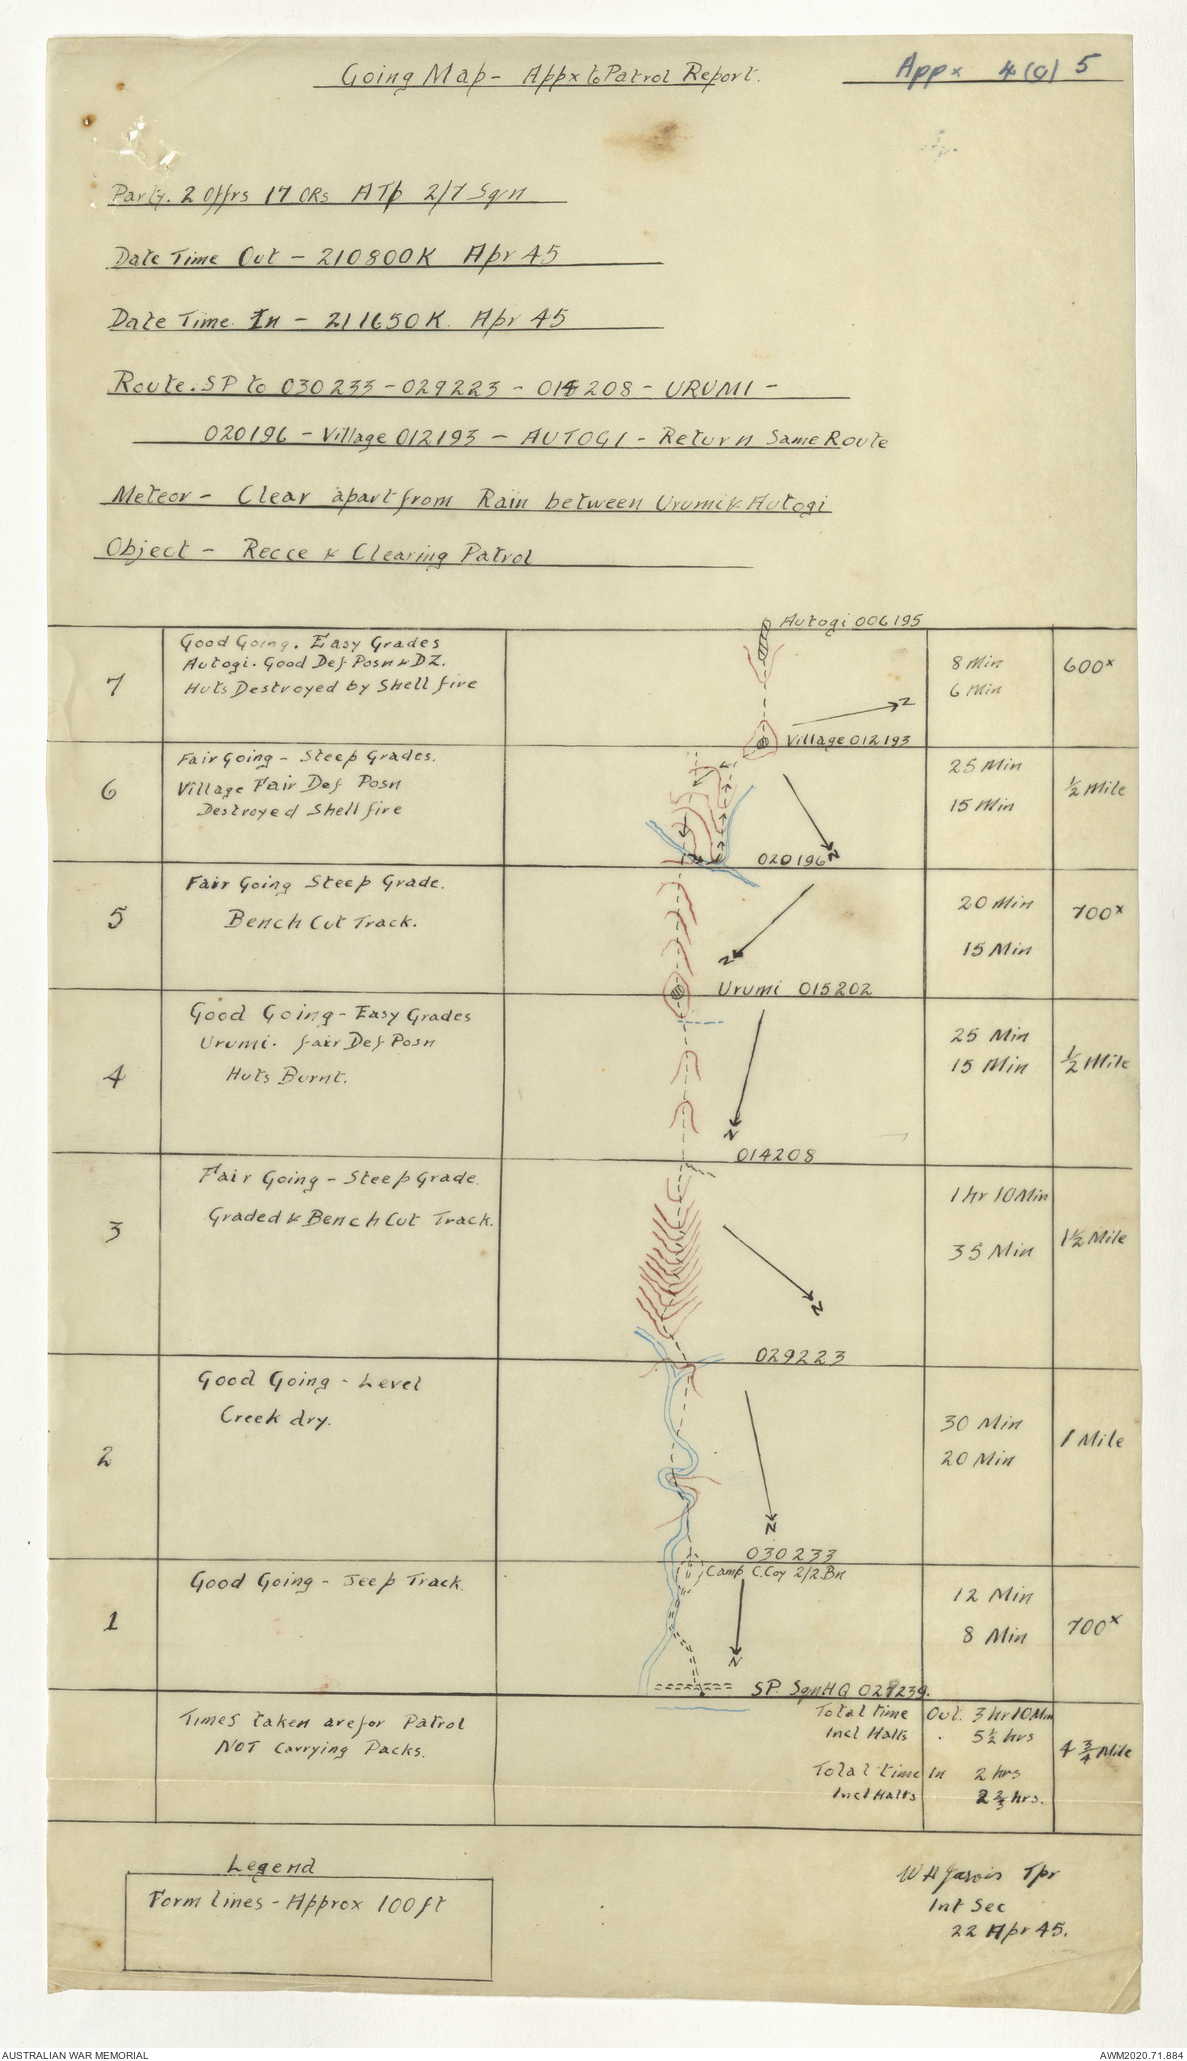 Going Map - Appx to Patrol Report.
Appx 4(a) 5
Party. 2 Offrs 17 ORs A Tp 2/7 Sqn
Date Time Out - 210800K Apr 45
Date Time In - 211650K. Apr 45
Route. SP to 030233 - 029223 - 014208 - URUMI -
020196 - Village 012193 - AUTOGI - Return Same Route
Meteor - Clear apart from Rain between Urumi & Autogi
Object - Recce & Clearing Patrol
Autogi 006195
7
Good Going. Easy Grades
Autogi. Good Def Posn & DZ.
Huts Destroyed by Shell fire
N
Village 012193
8 Min
6 Min
600x
6
Fair Going - Steep Grades.
Village Fair Def Posn
Destroyed Shell fire
N
020196
25 Min
15 Min
½ Mile
5
Fair Going Steep Grade.
Bench Cut Track.
N
Urumi 015202
20 Min
15 Min
700x
4
Good Going - Easy Grades
Urumi. fair Def Posn
Huts Burnt.
N
014208
25 Min
15 Min
½ Mile
3
Fair Going - Steep Grade.
Graded & Bench Cut Track.
N
029223
1 hr 10 Min
35 Min
1½ Mile
2
Good Going - Level
Creek dry.
N
030233
30 Min
20 Min
1 Mile
1
Good Going - Jeep Track.
Camp C. Coy 2/2 Bn
N
SP. Sqn HQ
12 Min
8 Min
700x
Times taken are for Patrol
NOT Carrying Packs.
Total time Out. 3 hr 10 Min
Incl Halts . 5½ hrs
Total time In 2 hrs
Incl Halts 2⅔ hrs.
4 ¾ Mile
Legend
Form lines - Approx 100 ft
W H Jarvis Tpr
Int Sec
22 Apr 45.
AUSTRALIAN WAR MEMORIAL
AWM2020.71.884